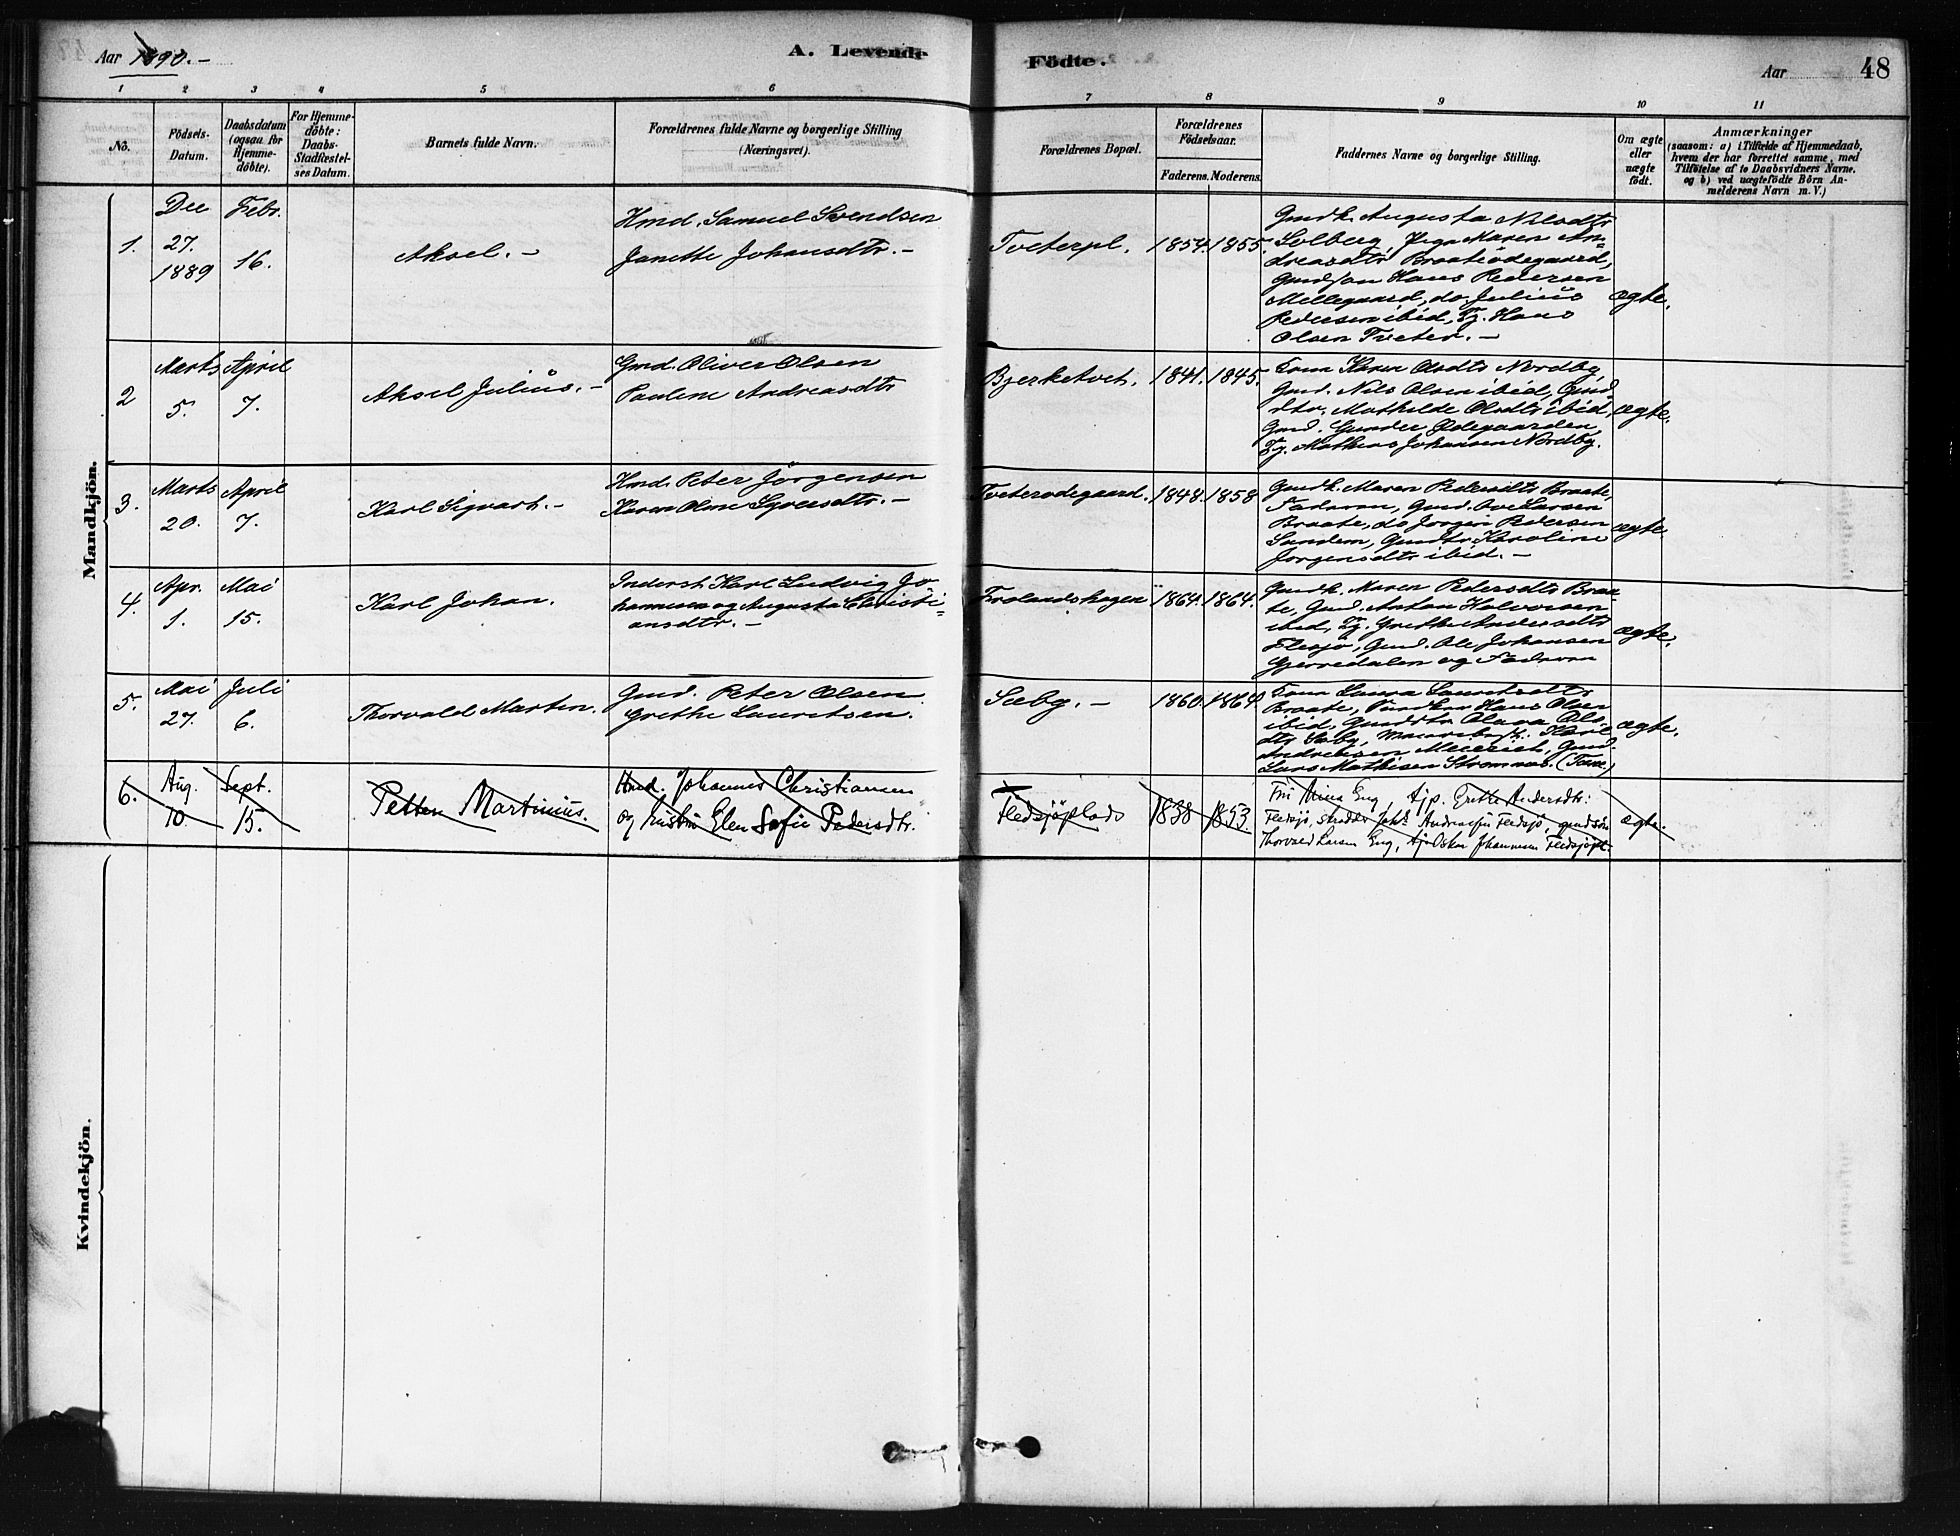 Aar 1890.-
A. Levende
Födte.
Aar
48
1 2 3 4 5 6 7 8 9 10 11
No.
Födsels-
Datum.
Daabsdatum
(ogsaa for
Hjemme-
döbte).
For Hjemme-
döbte:
Daabs-
Stadfæstel-
ses Datum.
Barnets fulde Navn.
Forældrenes fulde Navne og borgerlige Stilling
(Næringsvei).
Forældrenes Bopæl.
Forældrenes
Födselsaar.
Faderens. Moderens.
Faddernes Navne og borgerlige Stilling.
Om ægte
eller
uægte
födt.
Anmærkninger
(saasom: a) i Tilfælde af Hjemmedaab,
hvem der har forrettet samme, med
Tilföielse af to Daabsvidners Navne.
og b) ved uægtefödte Börn An-
melderens Navn m. V.)
Mandkjön.
1.
Dec
27.
1889
Febr.
16.
Aksel. -
Hmd. Samuel Svendsen
Janette Johansdtr. -
Tveterpl.
1854. 1855.
Gmdk. Augusta Nilsdtr
Solberg, Pige Maren An-
dreasdtr Braateödegaard,
Gmdsön Hans Pedersen
Mellegaard, do. Julius
Pedersen ibid, Tj. Hans
Olsen Tveter. -
ægte.
2
Marts
5.
April
7.
Aksel Julius. -
Gmd. Oliver Olsen
Pauline Andreasdtr
Bjerketvet.
1841. 1845.
Kone Karen Olsdtr Nordby,
Gmd. Nils Olsen ibid, Gmd.
dtr. Mathilde Olsdtr ibid,
Gmd. Gunder Ödegaarden,
Tj. Mathias Johansen Nordby.
ægte.
3.
Marts
20.
April
7.
Karl Sigvart. -
Hmd. Peter Jörgensen
Karen Oline Syversdtr. -
Tveterödegaard.
1848. 1858
Gmdk. Maren Pedersdtr Braate,
Faderen, Gmd. Ove Larsen
Braate, do Jörgen Pedersen
Sandem, Gmdtr. Karoline
Jörgensdtr ibid. -
ægte
4.
Apr.
1.
Mai
15.
Karl Johan.
Inderst Karl Ludvig Jo-
hannesen og Augusta Christi-
ansdtr. -
Frolandshagen
1864. 1864.
Gmdk. Maren Pedersdtr Braa-
te, Gmd. Anton Halvorsen
ibid, Tj. Grethe Andersdtr
Flesjö, Gmd. Ole Johansen
Gjerredalen og Faderen
ægte.
5.
Mai
27.
Juli
6.
Thorvald Martin.
Gmd. Peter Olsen
Grethe Lauretsen.
Sæby. -
1860. 1864
Kone Laura Lauretsdtr
Braate, Hans Olsen
ibid, Gmdsdtr Olava Ols-
dtr Sæby, Karl
Andreasen Meieriet, Gmd.
Lars Mathisen Strömnæs.
ægte.
6.
Aug.
10.
Sept.
15.
Petter Martinius.
Hmd. Johannes Christiansen
og hustru Elen Sofie Pedersdtr.
Fledsjöplads
1838 1853.
Fru Mina Eng, Ajp. Grethe Andersdtr:
Fledsjö, Andreassen Fledsjö, gmdsön
Thorvald Larsen Eng, Oskar Johannesen Fledsjöpl.
ægte.
Kvindekjön.